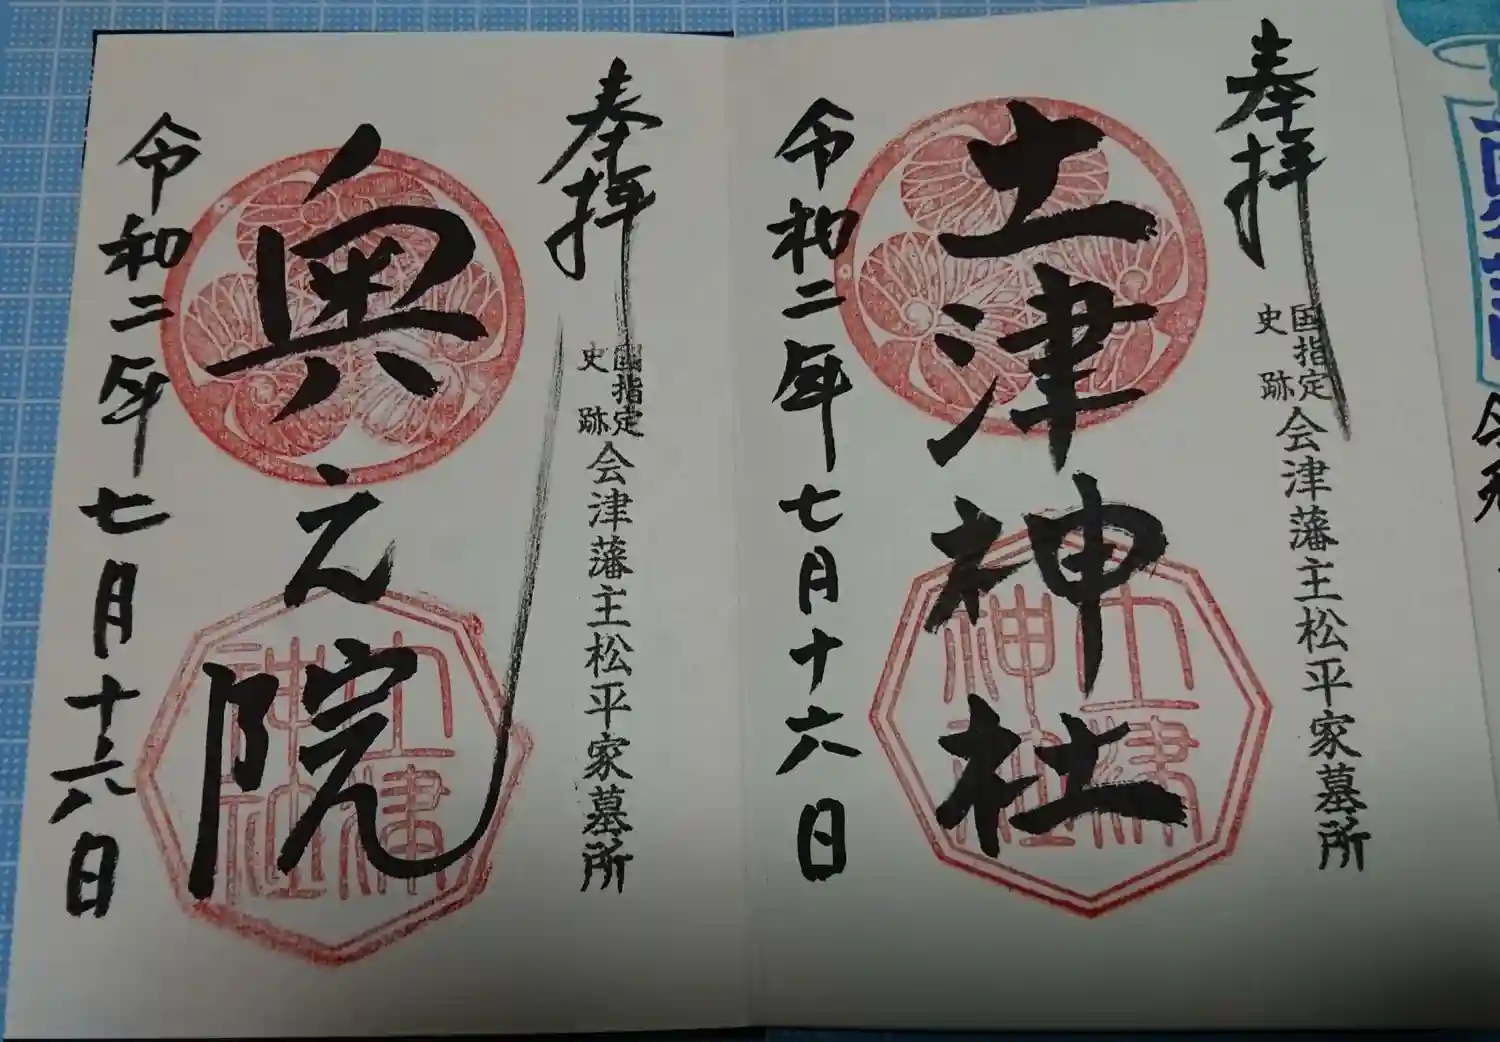 奉拝
国指定
史跡
会津藩主松平家墓所
土津神社
土津
神社
令和二年七月十六日
奉拝
國指定
史跡
会津藩主松平家墓所
奥之院
土津
神社
令和二年七月十六日